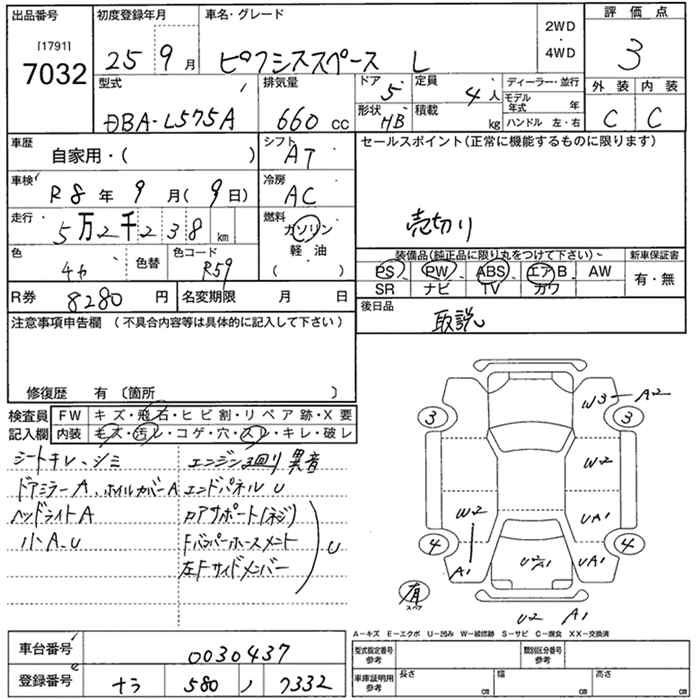 出品番号 初度登録年月 車名・グレード 2WD ・ 4WD 評価点
[1791]
7032 25 9月 L 3
型式 排気量 ドア 定員 ディーラー・並行 外装 内装
DBA-L575A 660 cc 5 4人 モデル年式 年 C C
形状 HB 積載 kg ハンドル 左・右
車歴 自家用・( ) シフト AT セールスポイント(正常に機能するものに限ります)
車検 R8年 9月(9日) 冷房 AC
走行 5万2千238km 燃料 ガソリン 売切り
軽油
( )
色 色替 色コード R59 装備品(純正品に限り丸をつけて下さい) 新車保証書
PS PW ABS エアB AW 有・無
SR ナビ TV カワ
R券 8280円 名変期限 月 日 後日品
取説
注意事項申告欄 (不具合内容等は具体的に記入して下さい)
修復歴 有 〔箇所 〕
検査員 FW キズ・飛石・ヒビ割・リペア跡・X要
記入欄 内装 キズ・汚レ・コゲ・穴・スレ・キレ・破レ
シートキレ、シミ エンジン3回り 異音
ドアミラーA、ホイルカバーA エンドパネルU
ヘッドライトA コアサポート(ネジ)
小A、U Fバンパーホースメント U
左Fサイドメンバー
W3 A2
3 3
W2
W2 UA1
4 4
A1 U2 A1 UA1
有 スペア
U2 A1
A-キズ E-エクボ U-凹み W-補修跡 S-サビ C-腐食 XX-交換済
車台番号 0030437 型式指定番号 参考 類別区分番号 参考
登録番号 ナラ 580 7332 車庫証明用 参考 長さ cm 幅 cm 高さ cm